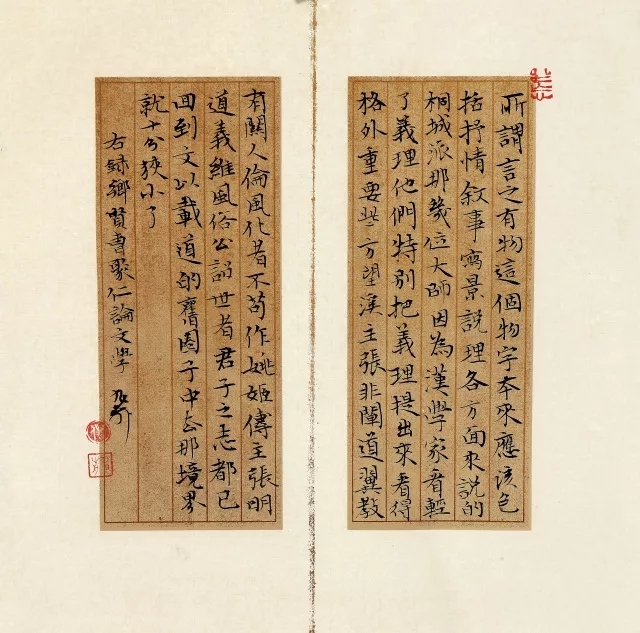 所謂言之有物這個物字本來應該包
括抒情敘事寫景說理各方面來說的
桐城派那幾位大師因為漢學家看輕
了義理他們特別把義理提出來看得
格外重要些方望溪主張非闡道翼教
有關人倫風化者不苟作姚姬傳主張明
道義維風俗以詔世者君子之志都已
回到文以載道的舊圈子中去那境界
就十分狹小了
右錄鄉賢曹聚仁論文學